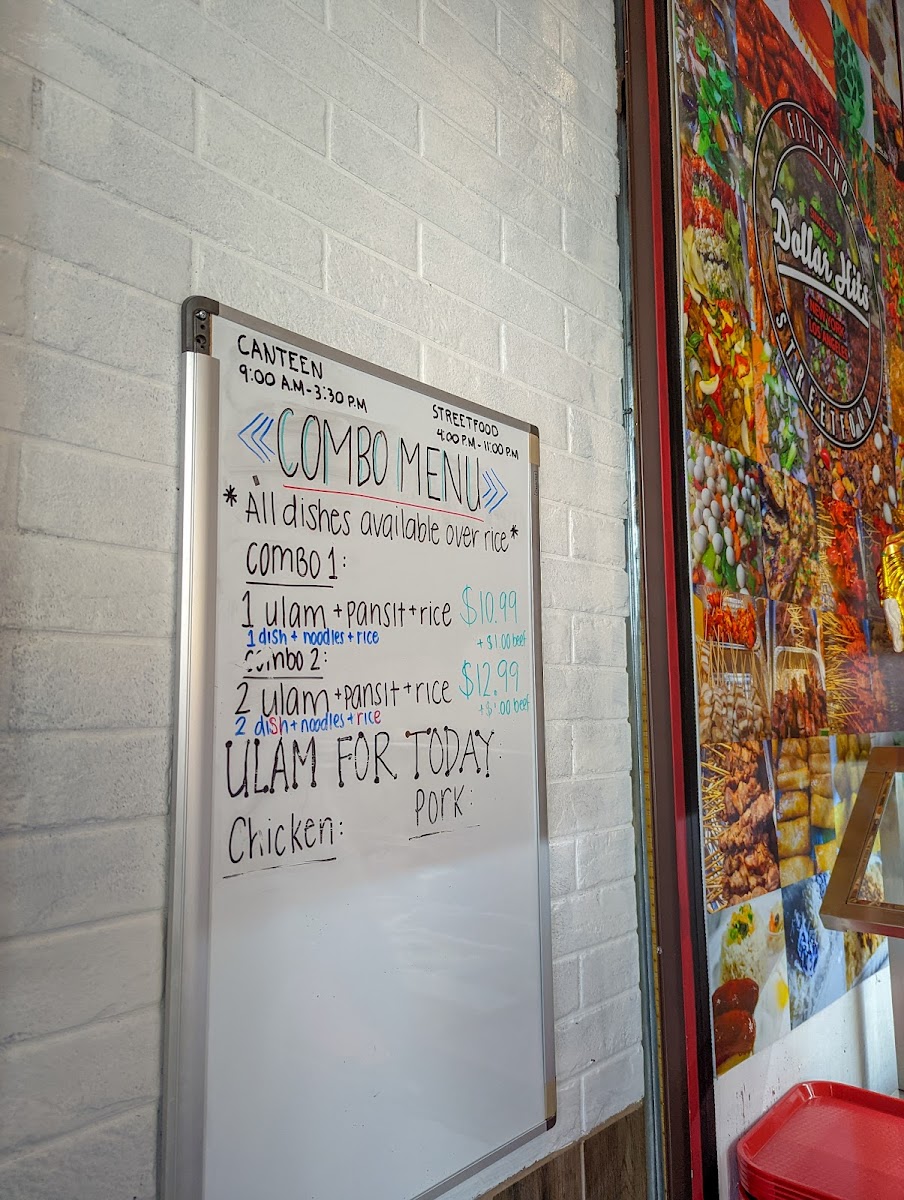 CANTEEN
9:00 A.M-3:30 P.M
STREETFOOD
4:00 P.M-11:00 P.M
COMBO MENU
*All dishes available over rice*
COMBO 1:
1 ulam +pansit+rice $10.99
1 dish + noodles + rice + $1.00 beef
Combo 2:
2 ulam+pansit+rice $12.99
2 dish+noodles+rice + $1.00 beef
ULAM FOR TODAY:
Chicken:
PORK:
FILIPINO
Dollar Hits
NEW YORK
LOS ANGELES
STREETFOOD